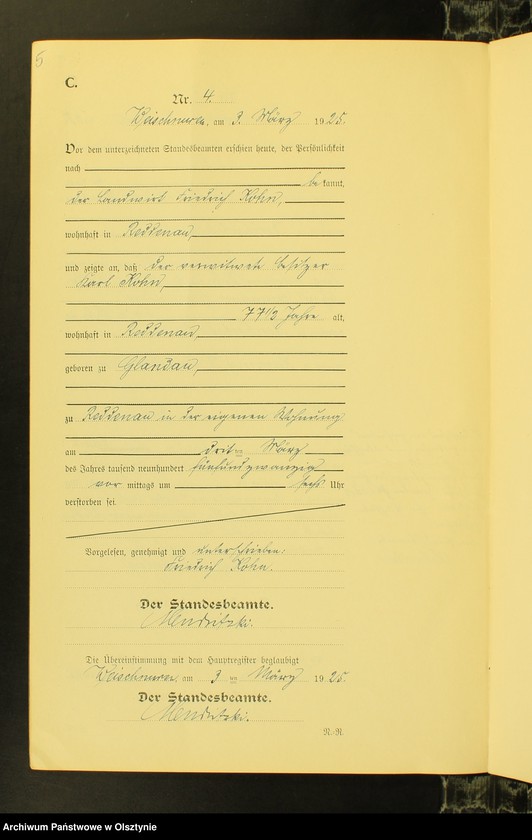 5
C.
Nr. 4.
am 3. März 1925.
Vor dem unterzeichneten Standesbeamten erschien heute, der Persönlichkeit
nach
be kannt,
der Landwirt Friedrich Kohn,
wohnhaft in Reddenau,
und zeigte an, daß der verwitwete Besitzer
Karl Kohn,
77 1/3 Jahre alt,
wohnhaft in Reddenau,
geboren zu Glandau,
zu Reddenau in der eigenen Wohnung
am dritten März
des Jahres tausend neunhundert fünfundzwanzig
vor mittags um sechs Uhr
verstorben sei.
Vorgelesen, genehmigt und unterschrieben:
Friedrich Kohn.
Der Standesbeamte.
Mendritzki.
Die Übereinstimmung mit dem Hauptregister beglaubigt
am 3. März 1925.
Der Standesbeamte.
Mendritzki.
N.-R.
Archiwum Państwowe w Olsztynie